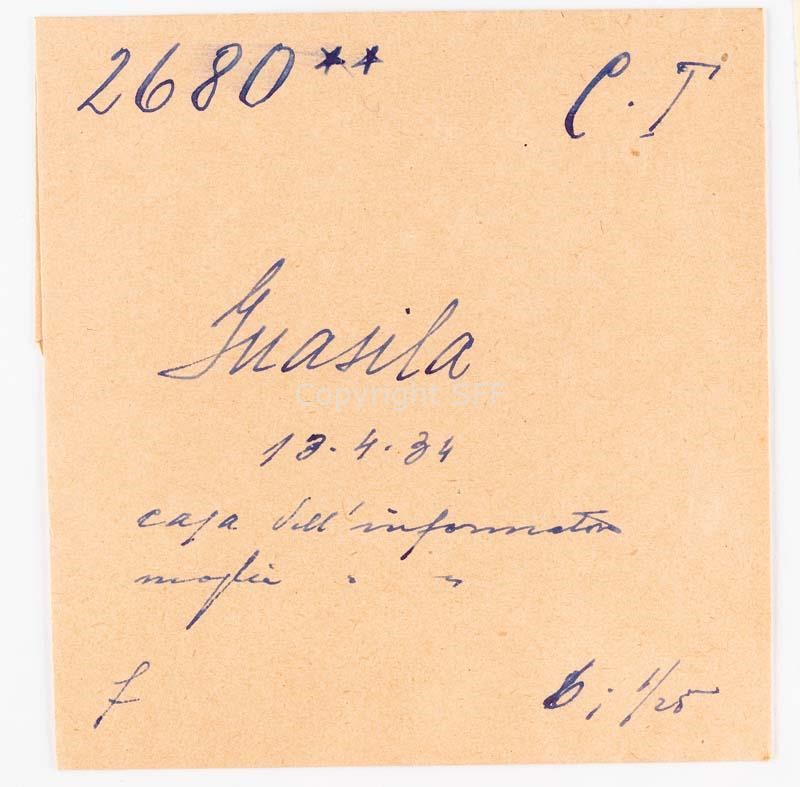 2680** C.T
Guasila
Copyright SFF
13.4.34
casa dell'informatore
moglie " "
f 6; 1/25